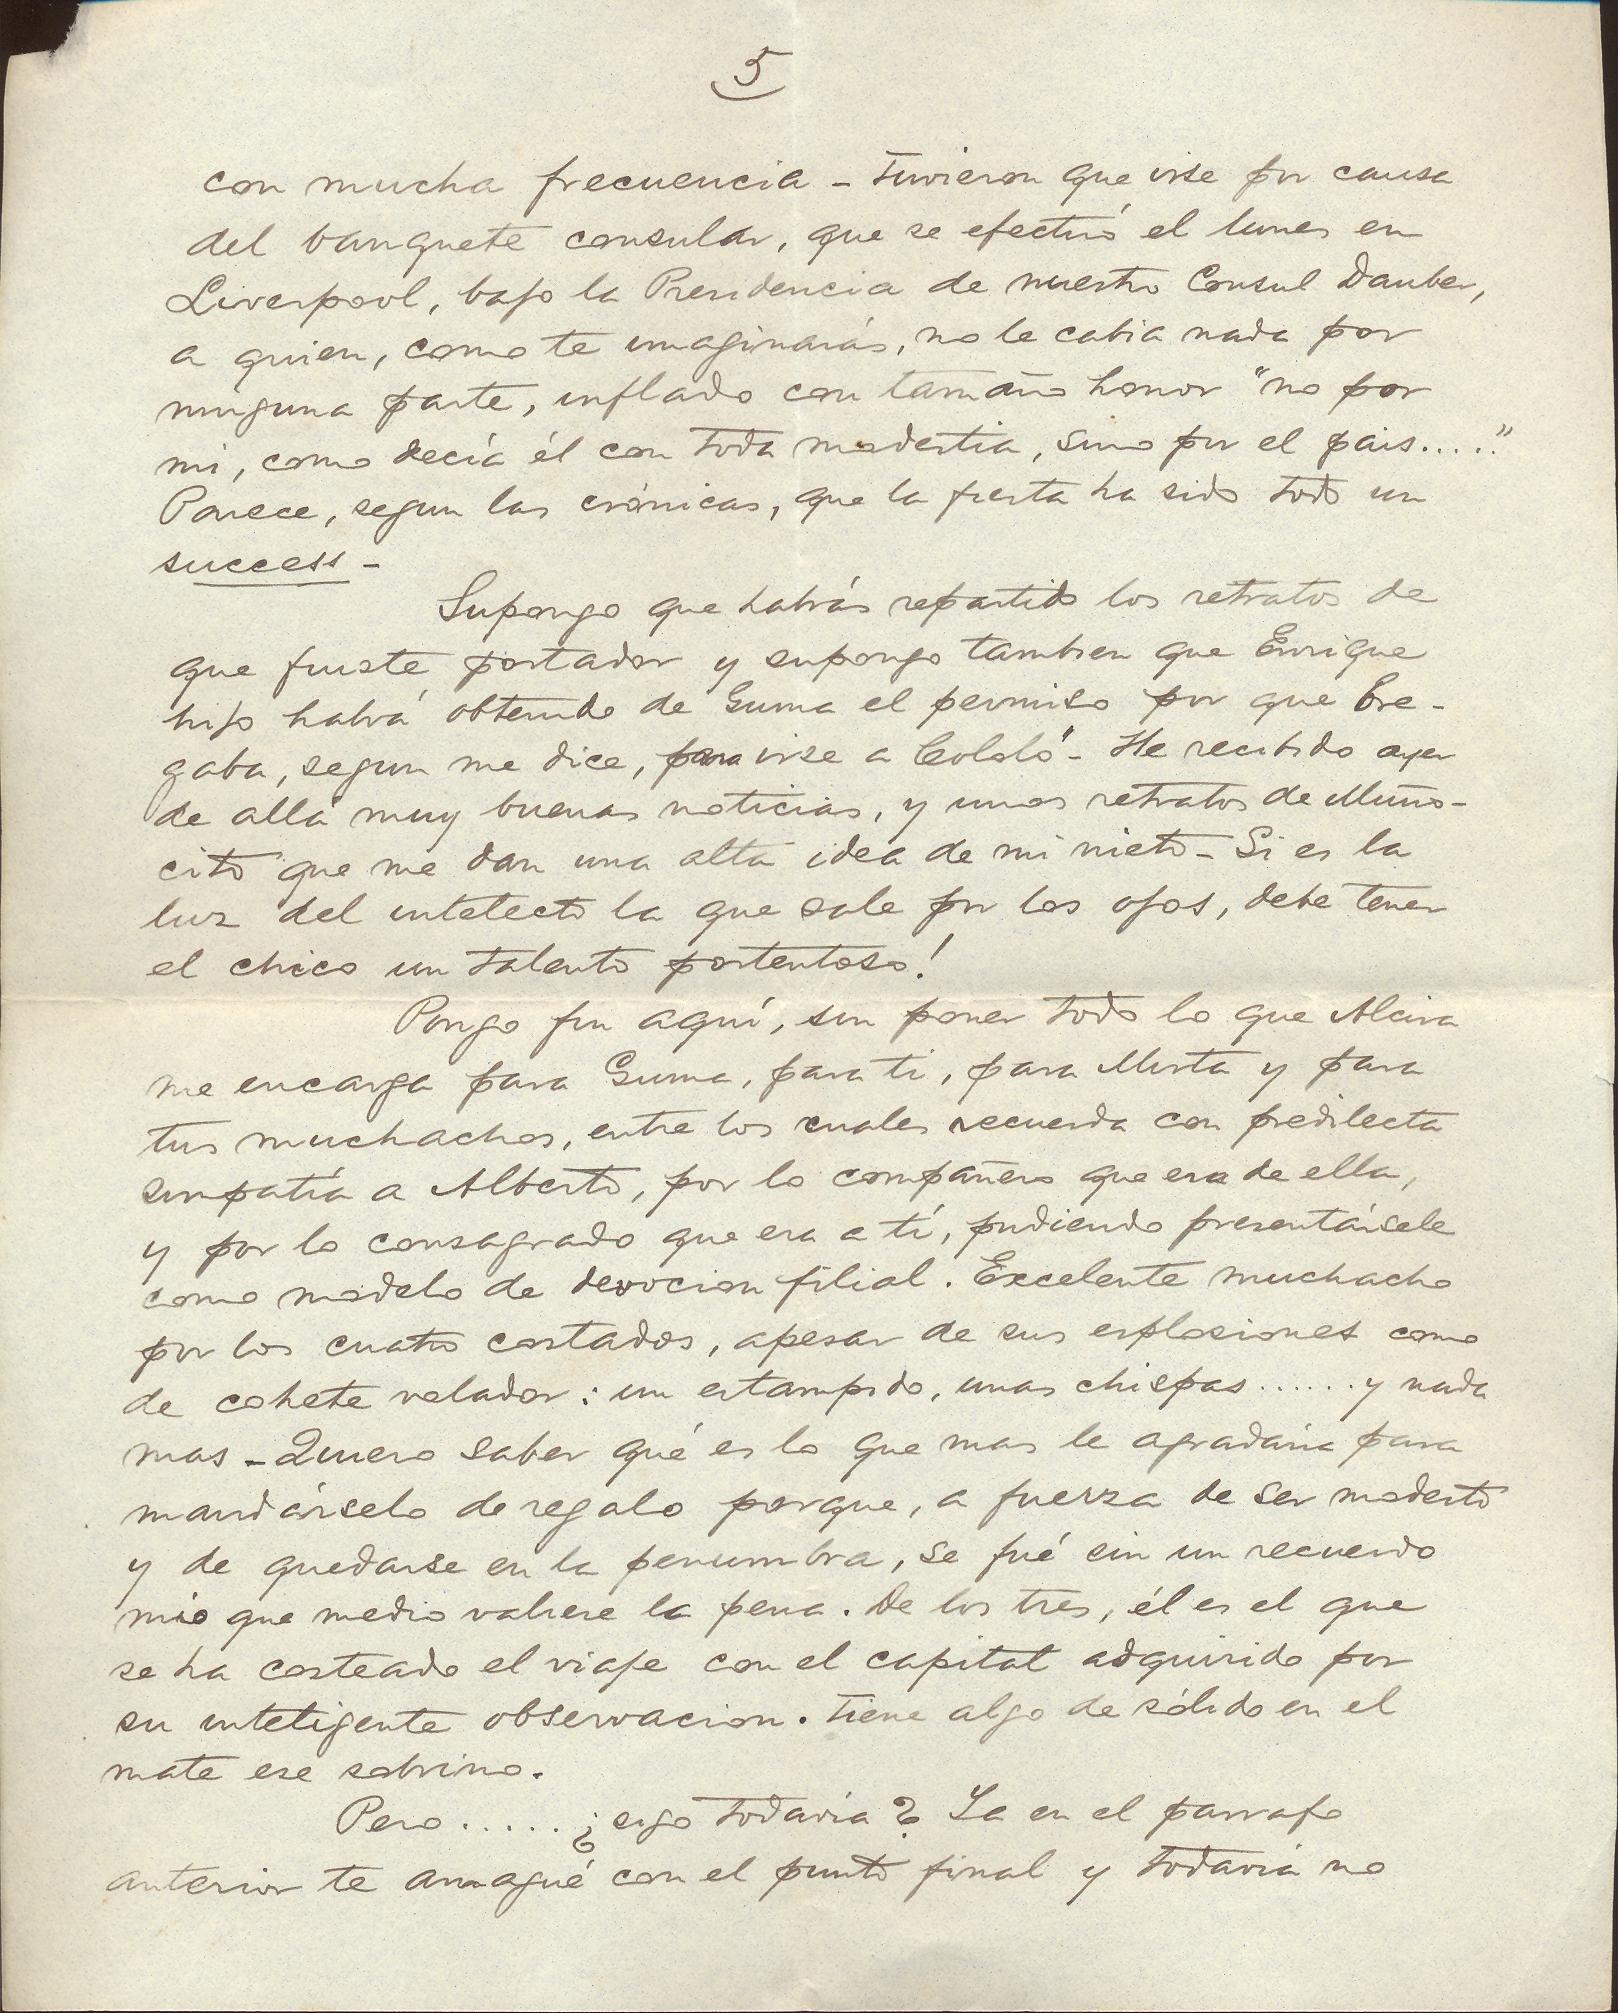 5
con mucha frecuencia - Tuvieron que irse por causa
del banquete consular, que se efectuó el lunes en
Liverpool, bajo la Presidencia de nuestro Consul Dauber,
a quien, como te imaginarás, no le cabia nada por
ninguna parte, inflado con tamaño honor "no por
mi, como decía él con toda modestia, sino por el pais....."
Parece, segun las crónicas, que la fiesta ha sido todo un
success -
Supongo que habrás repartido los retratos de
que fuiste portador y supongo tambien que Enrique
hijo habrá obtenido de Guma el permiso por que bre-
gaba, segun me dice, para irse a Cololó - He recibido ayer
de allá muy buenas noticias, y unos retratos de Muño-
cito que me dan una alta idea de mi nieto - Si es la
luz del intelecto la que sale por los ojos, debe tener
el chico un talento portentoso!
Pongo fin aquí, sin poner todo lo que Alcira
me encarga para Guma, para ti, para Mirta y para
tus muchachos, entre los cuales recuerda con predilecta
simpatía a Alberto, por lo compañero que era de ella,
y por lo consagrado que era a tí, pudiendo presentársele
como modelo de devocion filial. Excelente muchacho
por los cuatro costados, apesar de sus esplosiones como
de cohete volador: un estampido, unas chispas...... y nada
mas - Quiero saber qué es lo que mas le agradaria para
mandárselo de regalo porque, a fuerza de ser modesto
y de quedarse en la penumbra, se fué sin un recuerdo
mio que medio valiese la pena. De los tres, él es el que
se ha costeado el viaje con el capital adquirido por
su inteligente observacion. Tiene algo de sólido en el
mate ese sobrino.
Pero..... ¿sigo todavia? Ya en el parrafo
anterior te amagué con el punto final y todavia no